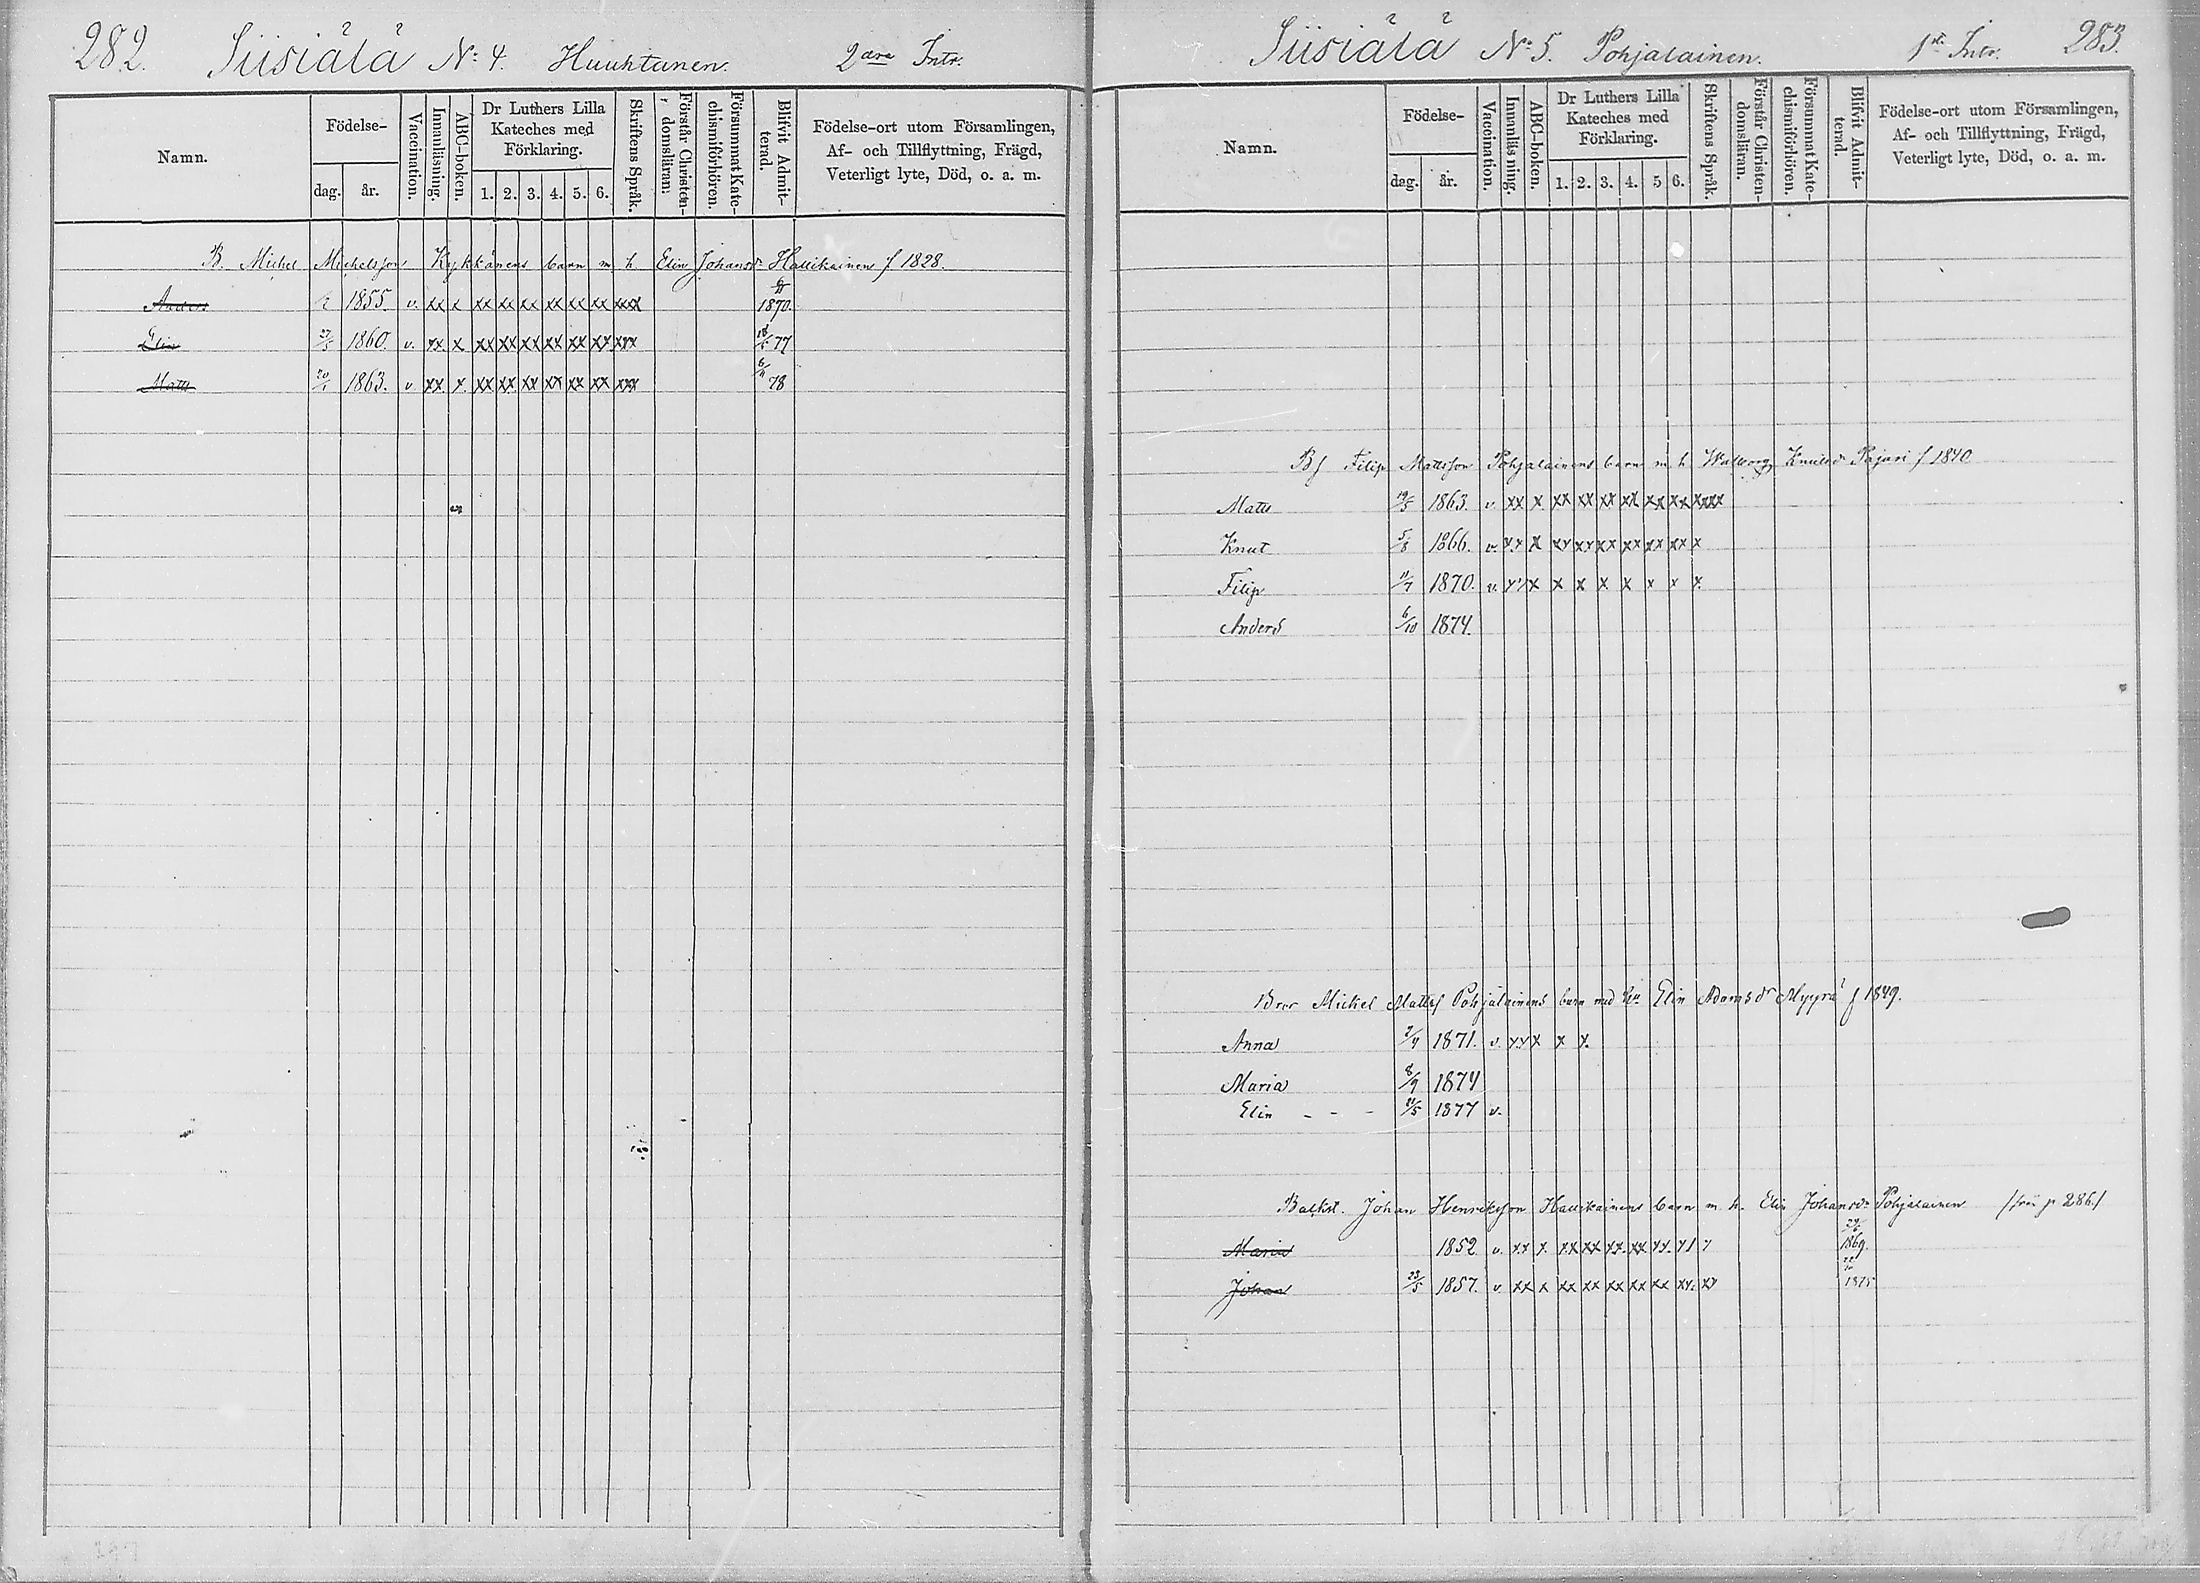 282. Siisiälä No 4. Huuhtanen. 2dra Intr.
Namn.
Födelse-
dag. år.
Vaccination.
Innanläsning.
ABC-boken.
Dr Luthers Lilla Kateches med Förklaring.
1. 2. 3. 4. 5. 6.
Skriftens Språk.
Förstår Christendomsläran.
Försummat Katechismiförhören.
Blifvit Admitterad.
Födelse-ort utom Församlingen, Af- och Tillflyttning, Frägd, Veterligt lyte, Död, o. a. m.
B. Michel Michelsson Kykkänens barn m h Elin Johansdr Hallikainen f 1828.
Anders 1855. v. xx x xx xx xx xx xx xx xxx 1870.
Elin 27/5 1860. v. xx x xx xx xx xx xx xx xxx 77
Matts 1863. v xx x. xx xx xx xx xx xx xxx 78
Siisiälä No 5. Pohjalainen. 1sta Intr. 283.
Namn.
Födelse-
dag. år.
Vaccination.
Innanläsning.
ABC-boken.
Dr Luthers Lilla Kateches med Förklaring.
1. 2. 3. 4. 5 6.
Skriftens Språk.
Förstår Christendomsläran.
Försummat Katechismiförhören.
Blifvit Admitterad.
Födelse-ort utom Församlingen, Af- och Tillflyttning, Frägd, Veterligt lyte, Död, o. a. m.
Bf Filip Mattsson Pohjalainens barn m h Walborg Knutsdr Pajari f 1840
Matts 19/5 1863. v. xx x xx xx xx xx xx xx xxxx
Knut 5/8 1866. v. xx x xx xx xx xx xx xx x
Filip 11/7 1870. v. xx x x x x x x x x
Anders 6/10 1874.
Bror Michel Mattsf Pohjalainens barn med hu Elin Adamsdr Myyrä f 1849.
Anna 2/4 1871. v. xx x x x.
Maria 8/9 1874
Elin - - - 21/5 1877 v.
Backst. Johan Henriksson Hallikainens barn m h. Elin Johansdr Pohjalainen (från p 286.)
Maria 1852 v. xx x. xx xx xx. xx xx. x 1869.
Johan 23/5 1857. v. xx x xx xx xx xx xx xx. xx 1875